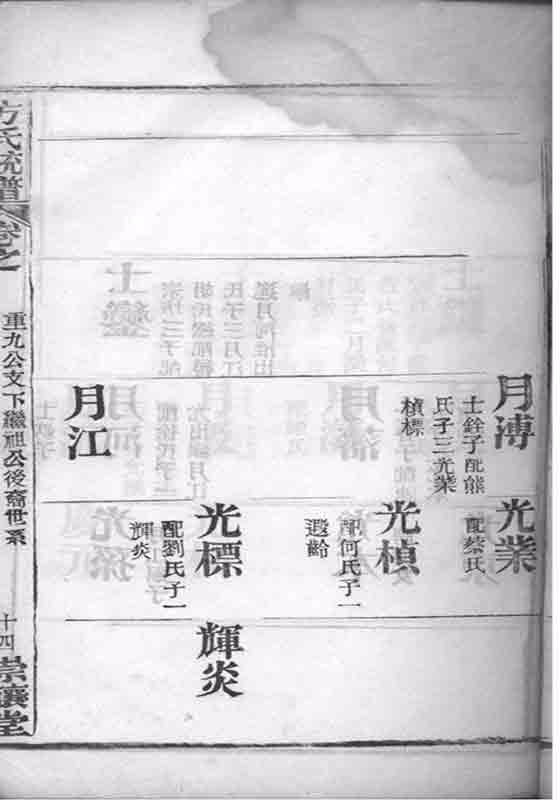 月溥
士銓子配熊
氏子三光業
楨標
光業
配蔡氏
光楨
配何氏子一
遐齡
光標
配劉氏子一
輝炎
輝炎
月江
方氏統譜
卷之一
重九公文下繼祖公後裔世系
十四
崇讓堂